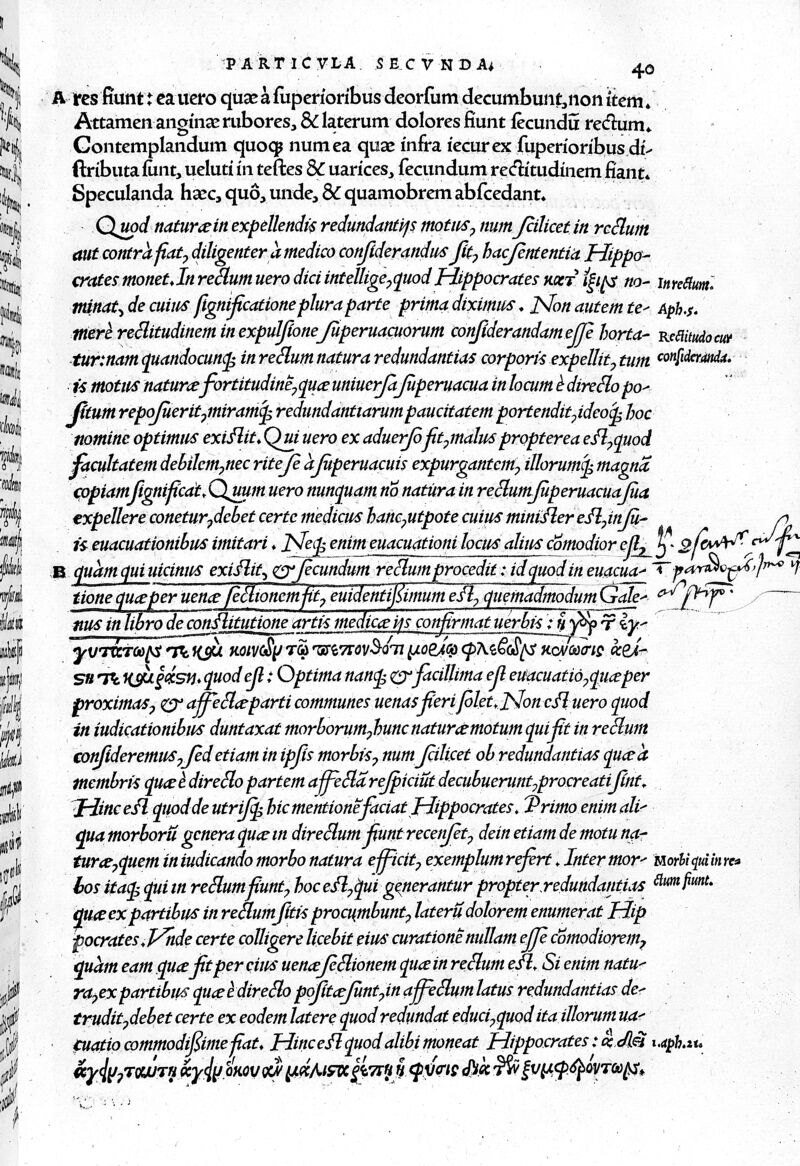 PARTICVLA SECVNDA. 40
A res fiunt: ea uero quæ à superioribus deorsum decumbunt, non item.
Attamen anginæ rubores, & laterum dolores fiunt secundũ rectum.
Contemplandum quoqꝫ num ea quæ infra iecur ex superioribus di-
stributa sunt, ueluti in testes & uarices, secundum rectitudinem fiant.
Speculanda hæc, quô, unde, & quamobrem abscedant.
Quod naturæ in expellendis redundantijs motus, num scilicet in rectum
aut contrà fiat, diligenter à medico considerandus sit, hac sententia Hippo-
crates monet. In rectum uero dici intellige, quod Hippocrates κατ᾽ ἴξιν no-
In rectum.
minat, de cuius significatione plura parte prima diximus. Non autem te-
Aph.5.
merè rectitudinem in expulsione superuacuorum considerandam esse horta-
Rectitudo cur
tur: nam quandocunqꝫ in rectum natura redundantias corporis expellit, tum
consideranda.
is motus naturæ fortitudinẽ, quæ uniuersa superuacua in locum è directo po-
situm reposuerit, miramqꝫ redundantiarum paucitatem portendit, ideoqꝫ hoc
nomine optimus existit. Qui uero ex aduerso fit, malus propterea est, quod
facultatem debilem, nec rite se à superuacuis expurgantem, illorumqꝫ magnã
copiam significat. Quum uero nunquam nõ natura in rectum superuacua sua
expellere conetur, debet certe medicus hanc, utpote cuius minister est, in su-
is euacuationibus imitari. Neqꝫ enim euacuationi locus alius cõmodior est,
B quàm qui uicinus existit, & secundum rectum procedit: id quod in euacua-
tione quæ per uenæ sectionem fit, euidentißimum est, quemadmodum Gale-
nus in libro de constitutione artis medicæ ijs confirmat uerbis: ἡ γὰρ τ͂ ἐγ-
γυτάτων τε καὶ κοινῶν τῷ πεπονθότι μορίῳ φλεβῶν κένωσις ἀρί-
ςη τε καὶ ῥάςη. quod est: Optima nanqꝫ & facillima est euacuatio, quæ per
proximas, & affectæ parti communes uenas fieri solet. Non est uero quod
in iudicationibus duntaxat morborum, hunc naturæ motum qui fit in rectum
consideremus, sed etiam in ipsis morbis, num scilicet ob redundantias quæ à
membris quæ è directo partem affectã respiciũt decubuerunt, procreati sint.
Hinc est quod de utrisqꝫ hic mentionẽ faciat Hippocrates. Primo enim ali-
qua morborũ genera quæ in directum fiunt recenset, dein etiam de motu na-
turæ, quem in iudicando morbo natura efficit, exemplum refert. Inter mor-
Morbi qui in re-
bos itaqꝫ qui in rectum fiunt, hoc est, qui generantur propter redundantias
ctum fiunt.
quæ ex partibus in rectum sitis procumbunt, laterũ dolorem enumerat Hip
pocrates. Vnde certe colligere licebit eius curationẽ nullam esse cõmodiorem,
quàm eam quæ fit per eius uenæ sectionem quæ in rectum est. Si enim natu-
ra, ex partibus quæ è directo positæ sunt, in affectum latus redundantias de-
trudit, debet certe ex eodem latere quod redundat educi, quod ita illorum ua-
cuatio commodißime fiat. Hinc est quod alibi moneat Hippocrates: ἃ δεῖ
1.aph.21.
ἄγειν, ταύτῃ ἄγειν ὅκου ἂν μάλιςα ῥέπῃ ἡ φύσις διὰ τῶν ξυμφερόντων.